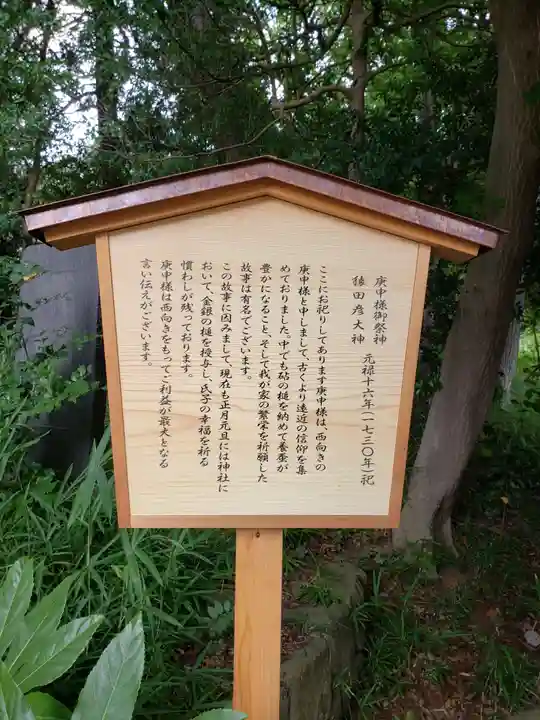 庚申様御祭神
猿田彦大神　元禄十六年（一七三〇年）祀
ここにお祀りしてあります庚申様は、西向きの
庚申様と申しまして、古くより遠近の信仰を集
めておりました。中でも砧の槌を納めて養蚕が
豊かになること、そして我が家の繁栄を祈願した
故事は有名でございます。
この故事に因みまして、現在も正月元旦には神社に
おいて、金銀の槌を授与し、氏子の幸福を祈る
慣わしが残っております。
庚申様は西向きをもってご利益が最大となる
言い伝えがございます。